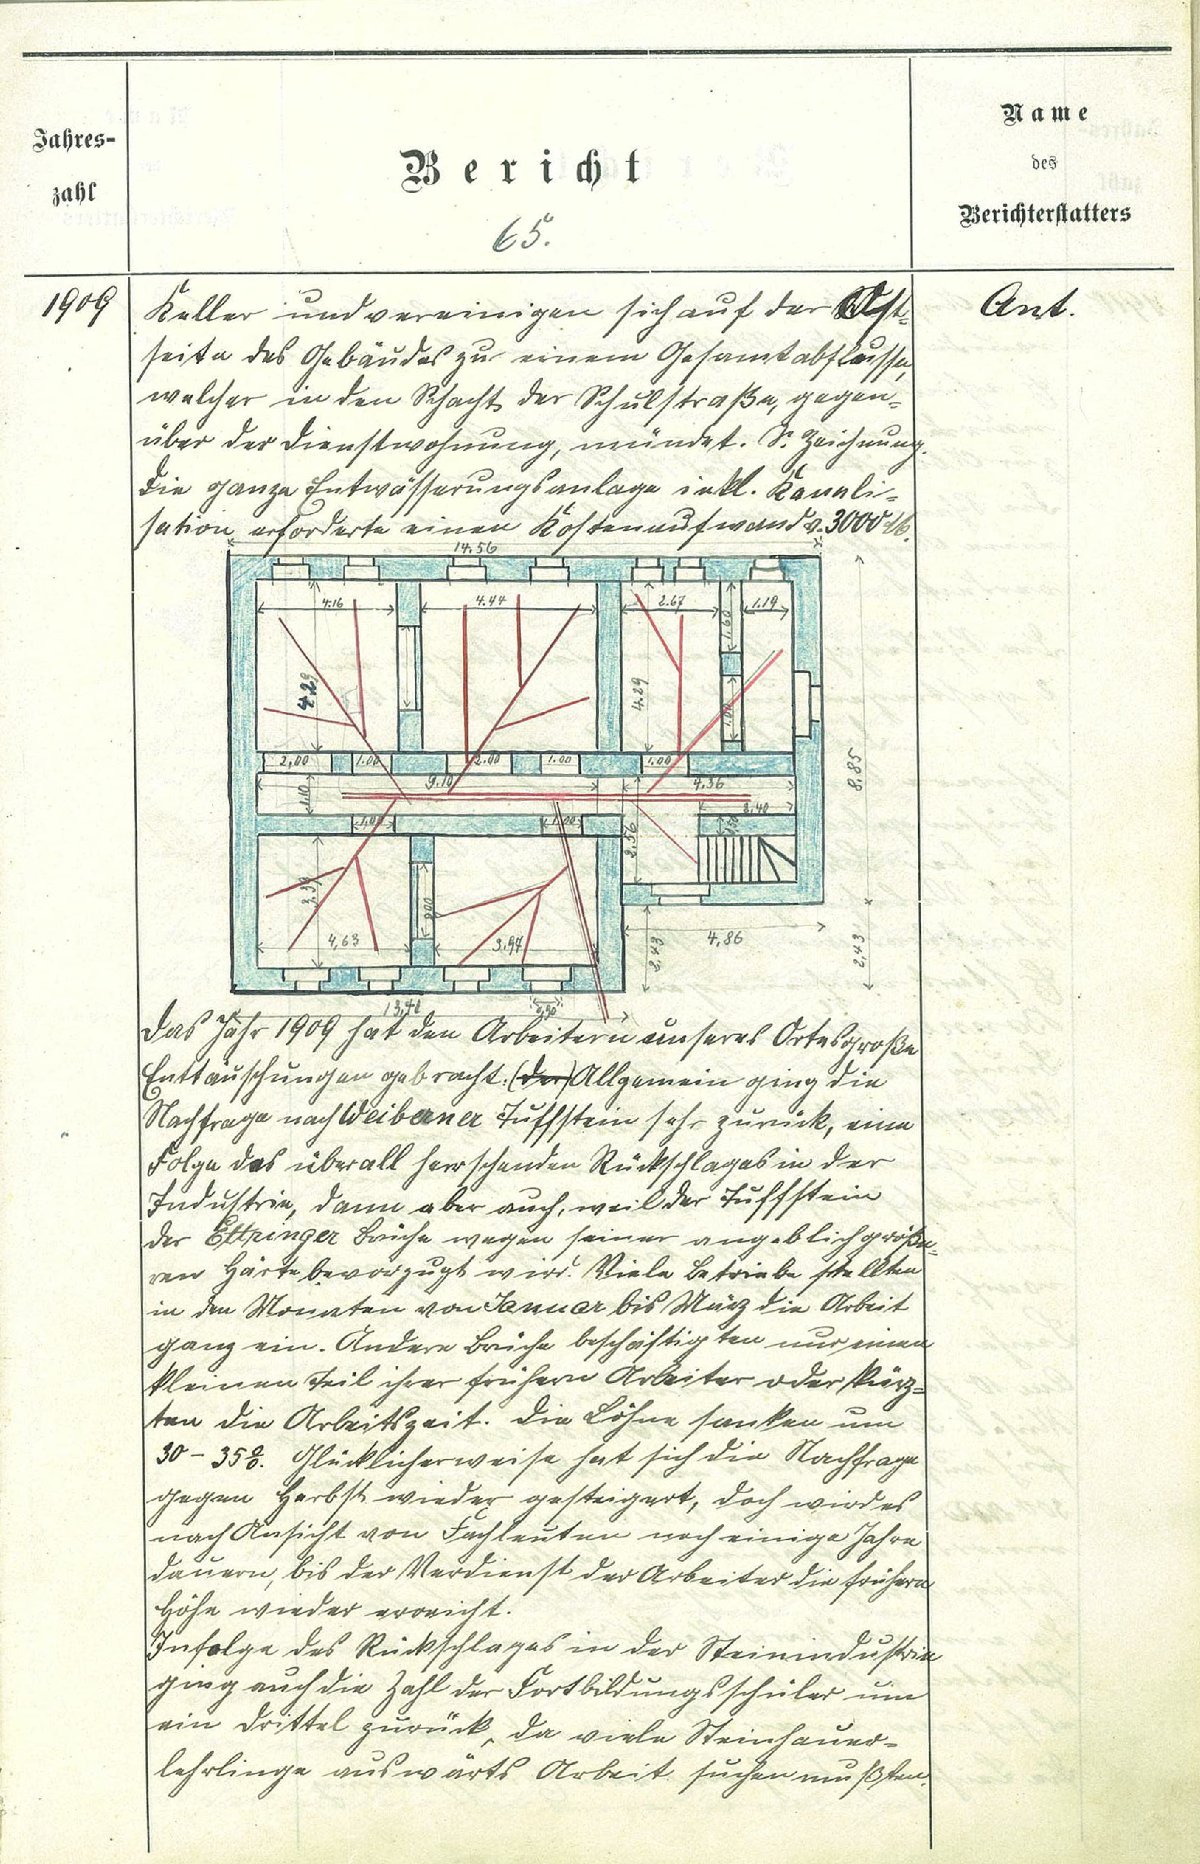 Jahres-
zahl
Bericht
65.
Name
des
Berichterstatters
1909
Ant.
Keller und vereinigen sich auf der Ost-
seite des Gebäudes zu einem Gesamtabflusse,
welcher in den Schacht der Schulstraße, gegen-
über der Dienstwohnung, mündet. S. Zeichnung.
Die ganze Entwässerungsanlage inkl. Kanali-
sation erforderte einen Kostenaufwand v. 3000 M.
14.56
4.16
4.44
2.67
1.60
1.19
4.29
4.29
1.00
2,00
1.00
2.00
1.00
1.00
9.10
4.36
1.10
2.40
8,85
1,00
1.00
2.56
3,39
4,63
3.97
4,86
2,43
2,43
Das Jahr 1909 hat den Arbeitern unseres Ortes große
Enttäuschungen gebracht. (der) Allgemein ging die
Nachfrage nach Weiberner Tuffstein sehr zurück, eine
Folge des überall herrschenden Rückschlages in der
Industrie, dann aber auch, weil der Tuffstein
der Ettringer Brüche wegen seiner angeblich größe-
ren Härte bevorzugt wird. Viele Betriebe stellten
in den Monaten von Januar bis März die Arbeit
ganz ein. Andere Brüche beschäftigten nur einen
kleinen Teil ihrer frühern Arbeiter oder kürz-
ten die Arbeitszeit. Die Löhne sanken um
30 - 35 %. Glücklicherweise hat sich die Nachfrage
gegen Herbst wieder gesteigert, doch wird es
nach Ansicht von Fachleuten noch einige Jahre
dauern, bis der Verdienst der Arbeiter die frühere
Höhe wieder erreicht.
Infolge des Rückschlages in der Steinindustrie
ging auch die Zahl der Fortbildungsschüler um
ein Drittel zurück, da viele Steinhauer-
lehrlinge auswärts Arbeit suchen mußten.